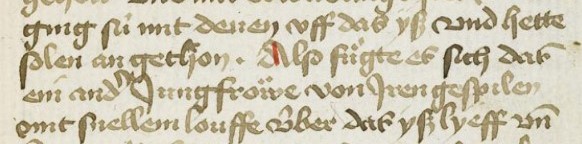 ging sú mit denen vff das yß vnd hette
solen an gethon . Also fúgte es sich das
ein and' Jungfröwe von Jren gespilen
mit snellem louffe v́ber das yß lyeff vn̄